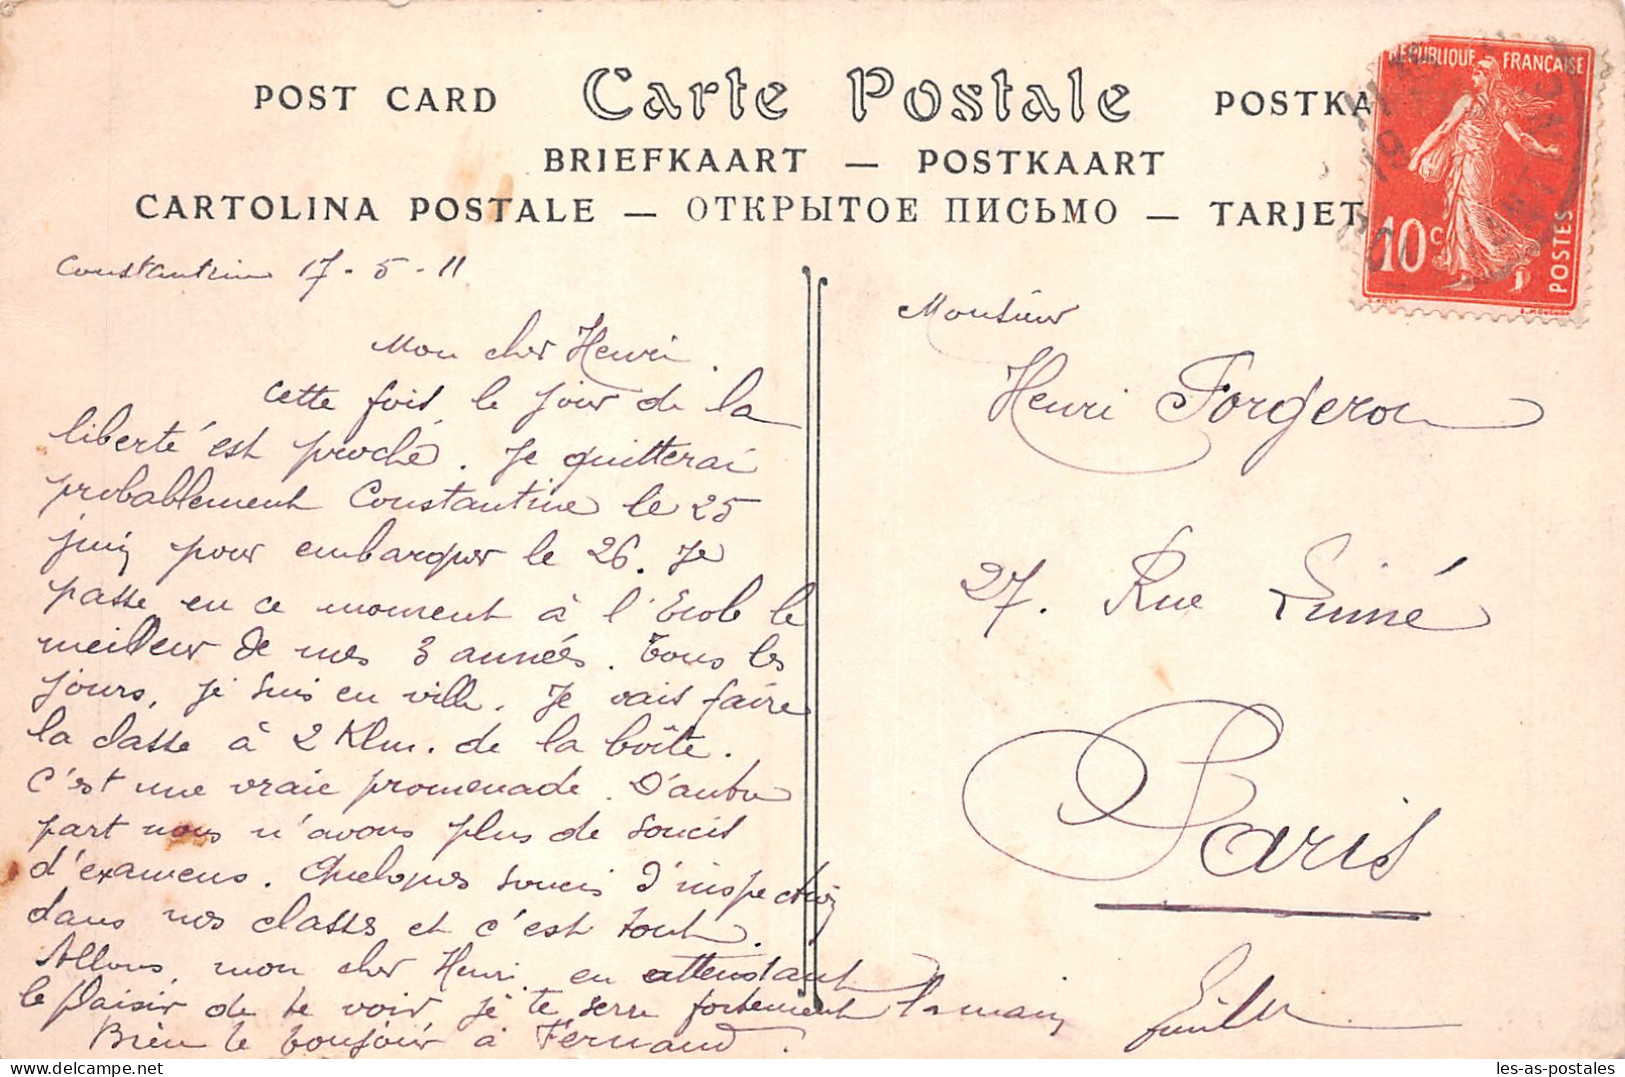 POST CARD Carte Postale POSTKA
BRIEFKAART — POSTKAART
CARTOLINA POSTALE — ОТКРЫТОЕ ПИСЬМО — TARJET
RÉPUBLIQUE FRANÇAISE
10c
POSTES
Constantine 17-5-11
Mon cher Henri.
Cette fois, le jour de la
liberté est proche. Je quitterai
probablement Constantine le 25
juin pour embarquer le 26. Je
passe en ce moment à l'Ecole le
meilleur de mes 3 années. Tous les
jours, je suis en ville. Je vais faire
la classe à 2 Klm. de la boîte.
C'est une vraie promenade. D'autre
part nous n'avons plus de soucis
d'examens. Quelques soucis d'inspection
dans nos classes et c'est tout.
Allons, mon cher Henri, en attendant
le plaisir de te voir je te serre fortement la main
Bien le bonjour à Fernand.
Monsieur
Henri Forgeron
27. Rue Linné
Paris
les-as-postales